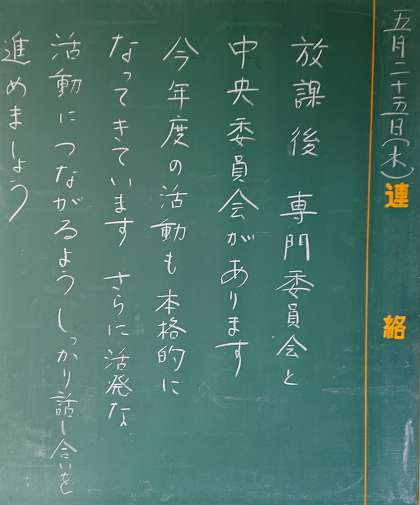 五月二十五日(木)
連絡
放課後 専門委員会と
中央委員会があります
今年度の活動も本格的に
なってきています さらに活発な
活動につながるよう しっかり話し合いを
進めましょう